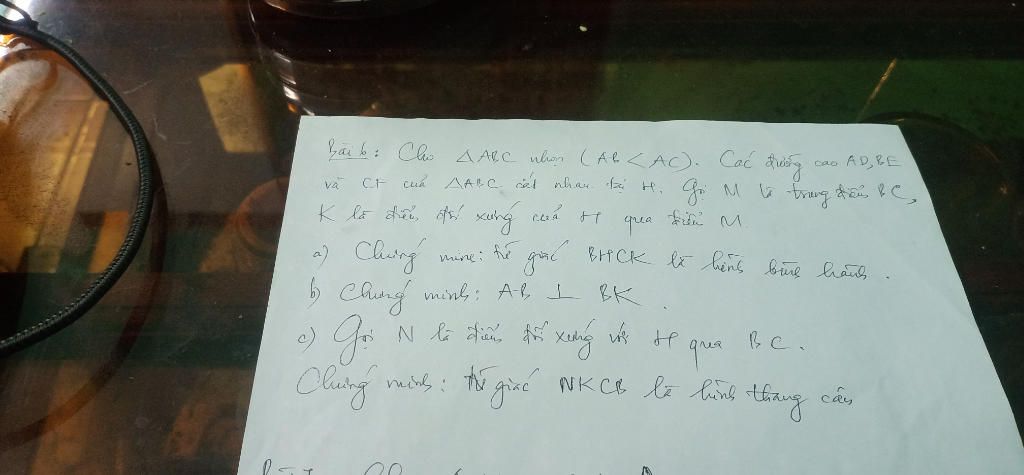 Bài 6: Cho △ABC nhọn (AB < AC). Các đường cao AD, BE
và CF của △ABC cắt nhau tại H. Gọi M là trung điểm BC,
K là điểm đối xứng của H qua điểm M.
a) Chứng mine: tứ giác BHCK là hình bình hành.
b) Chứng minh: AB ⊥ BK.
c) Gọi N là điểm đối xứng với H qua BC.
Chứng minh: tứ giác NKCB là hình thang cân